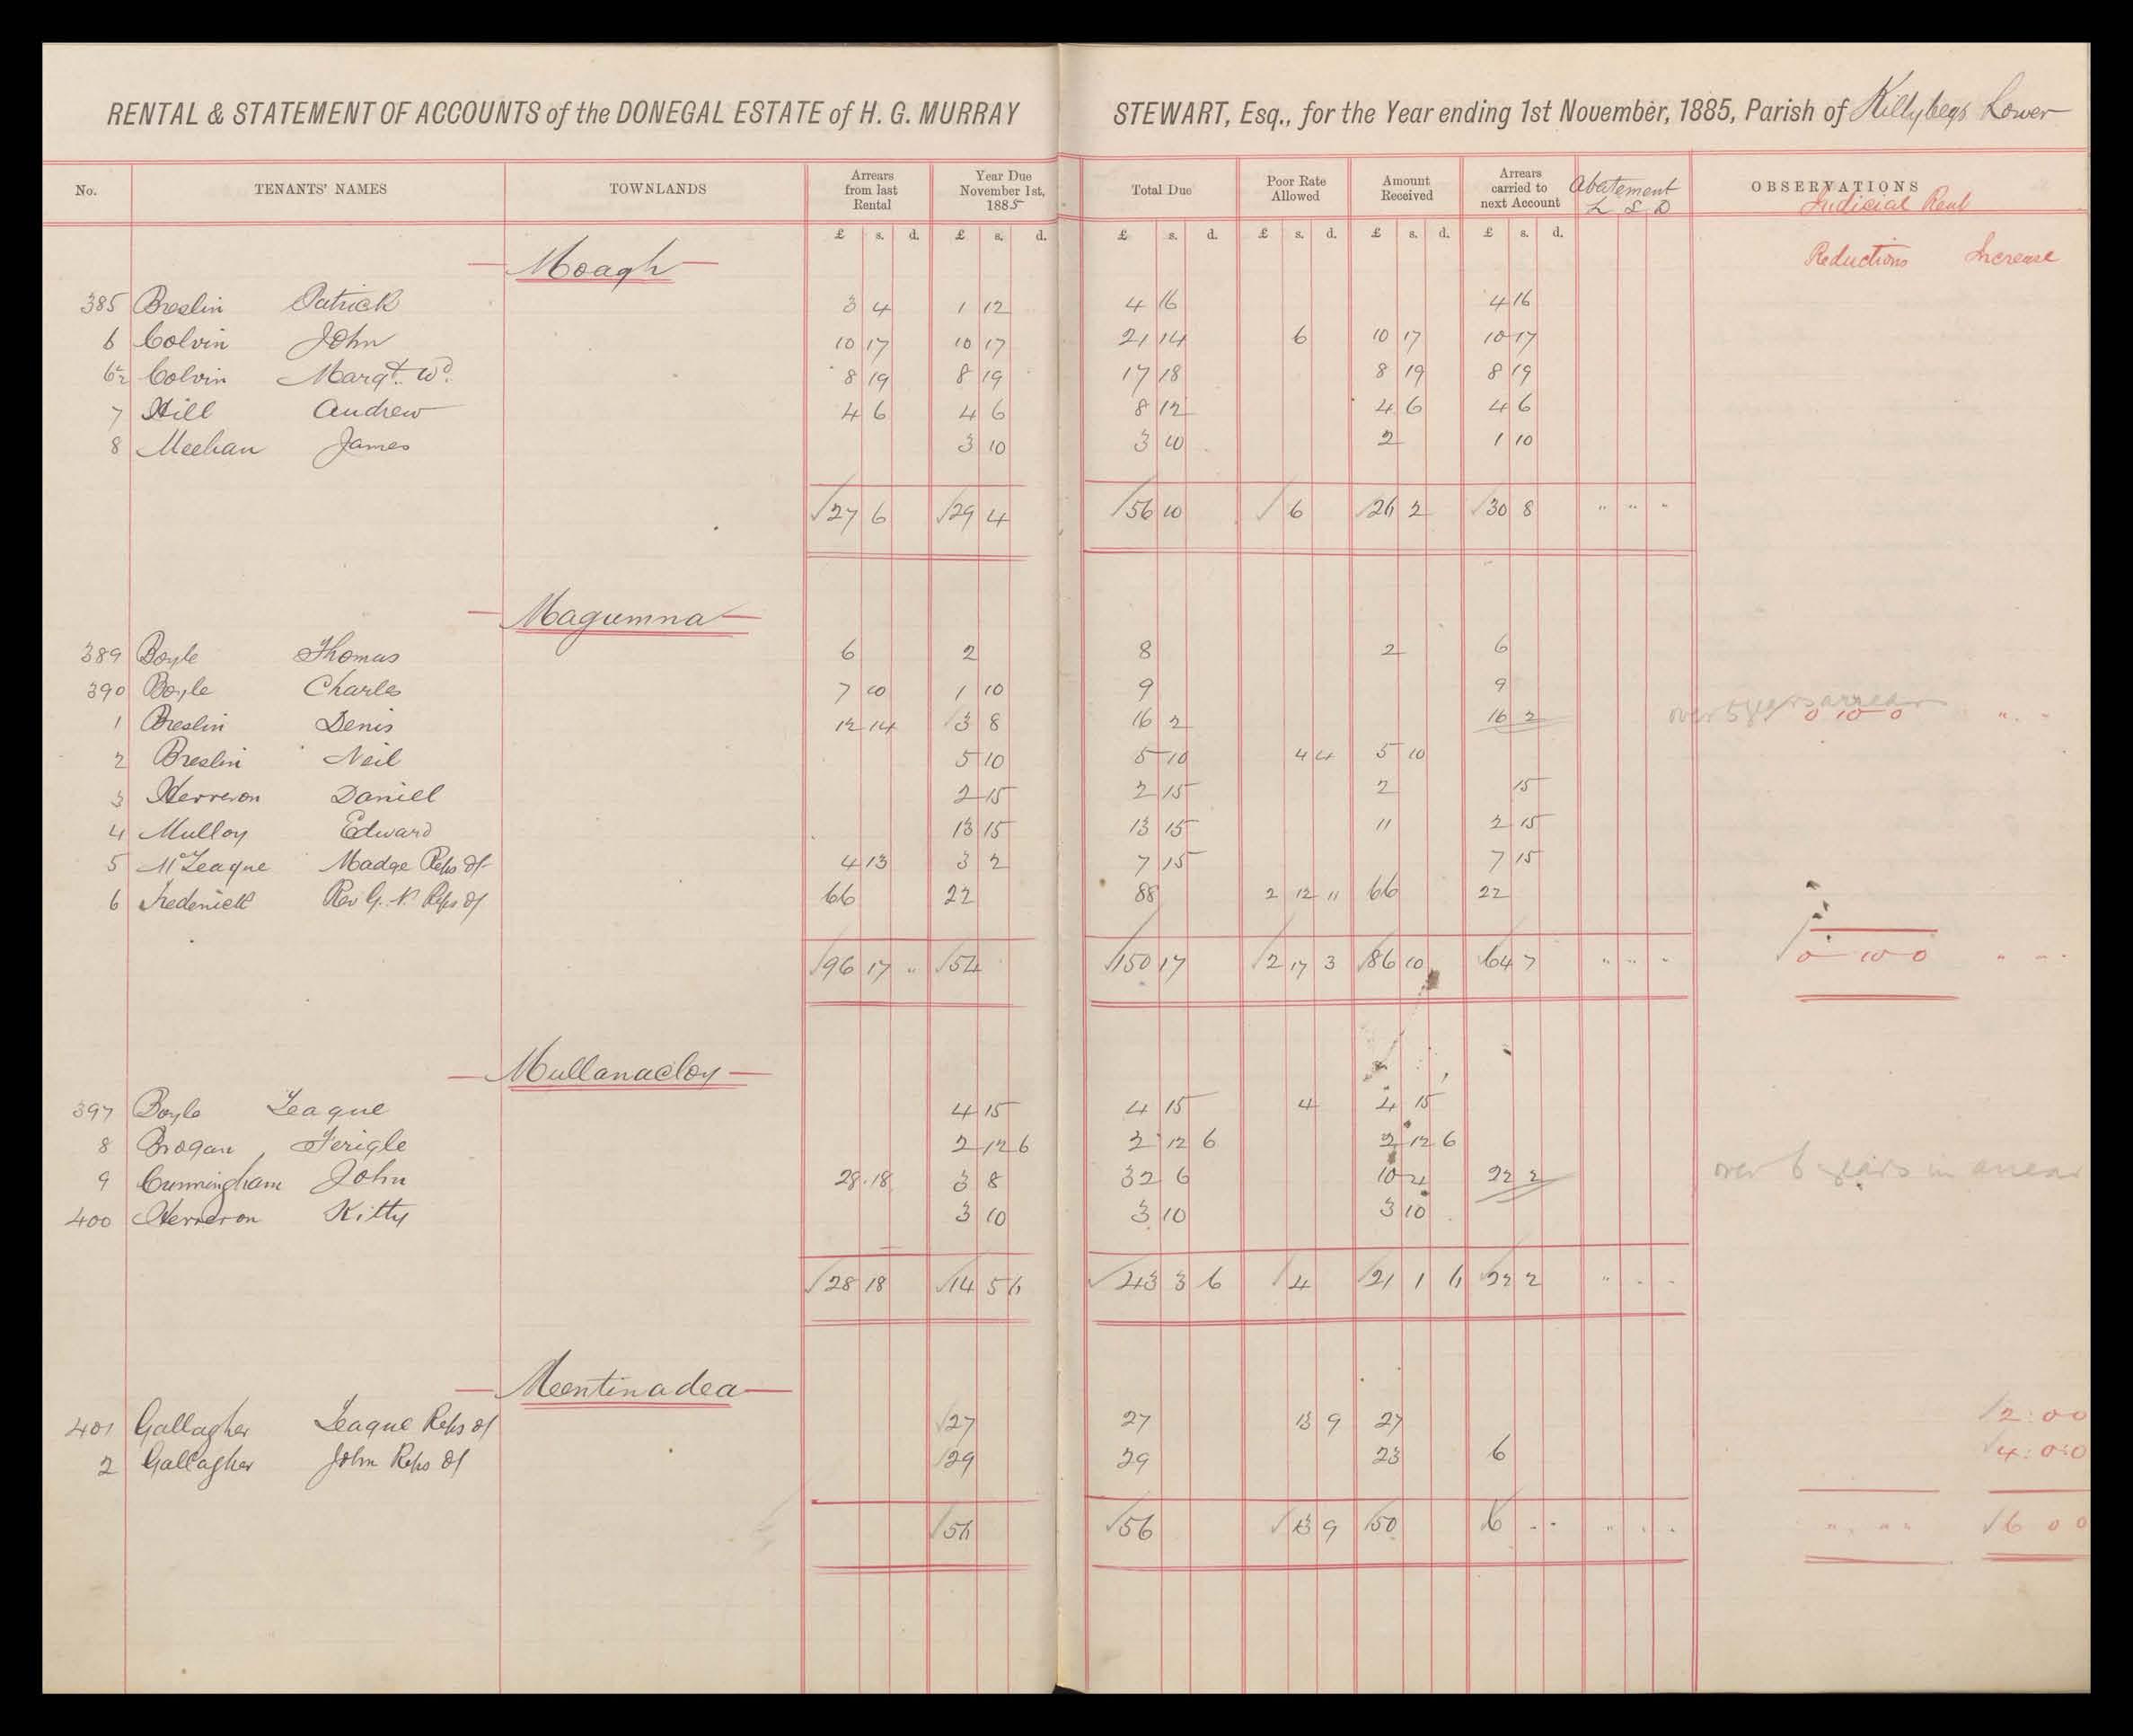 RENTAL & STATEMENT OF ACCOUNTS of the DONEGAL ESTATE of H. G. MURRAY STEWART, Esq., for the Year ending 1st November, 1885, Parish of Killybegs Lower
No. TENANTS' NAMES TOWNLANDS Arrears from last Rental Year Due November 1st, 1885 Total Due Poor Rate Allowed Amount Received Arrears carried to next Account Abatement £ S D OBSERVATIONS Judicial Rent
£ s. d. £ s. d. £ s. d. £ s. d. £ s. d. £ s. d. Reductions Increase
Moagh
385 Breslin Patrick 3 4 1 12 4 16 4 16
6 Colvin John 10 17 10 17 21 14 6 10 17 10 17
6½ Colvin Margt. Wd. 8 19 8 19 17 18 8 19 8 19
7 Hill Andrew 4 6 4 6 8 12 4 6 4 6
8 Meehan James 3 10 3 10 2 1 10
27 6 29 4 56 10 6 26 2 30 8 " " "
Magumna
389 Boyle Thomas 6 2 8 2 6
390 Boyle Charles 7 10 1 10 9 9
1 Breslin Denis 12 14 3 8 16 2 16 2 over 5 years arrear 0 10 0 " " "
2 Breslin Neil 5 10 5 10 4 4 5 10
3 Herreron Daniel 2 15 2 15 2 15
4 Mulloy Edward 13 15 13 15 11 2 15
5 McTeague Madge Reps of 4 13 3 2 7 15 7 15
6 Tredenick Rev G. N. Reps of 66 22 88 2 12 11 66 22
96 17 " 54 150 17 2 17 3 86 10 64 7 " " " 0 10 0 " " "
Mullanacloy
397 Boyle Teague 4 15 4 15 4 4 15
8 Brogan Ferigle 2 12 6 2 12 6 2 12 6
9 Cunningham John 28 18 3 8 32 6 10 4 22 2 over 6 years in arrear
400 Herreron Kitty 3 10 3 10 3 10
28 18 14 5 6 43 3 6 4 21 1 6 22 2 " " "
Meentinadea
401 Gallagher Teague Reps of 27 27 13 9 27 2:0 0
2 Gallagher John Reps of 29 29 23 6 4:0:0
56 56 13 9 50 6 - - " " " " " " 6 0 0